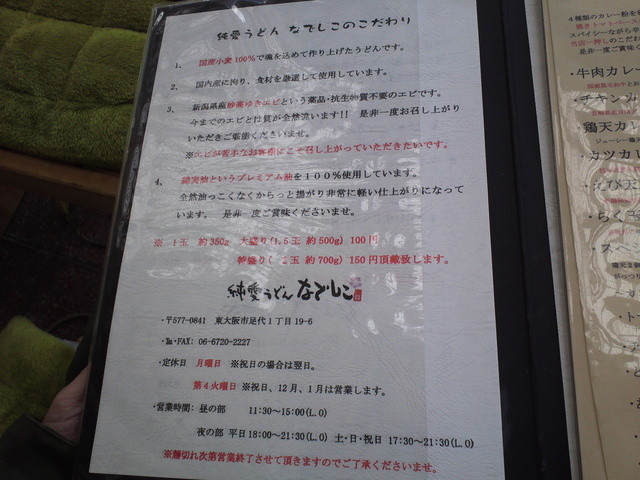 純愛うどん なでしこのこだわり
1、 国産小麦100%で魂を込めて作り上げたうどんです。
2、 国内産に拘り、食材を厳選して使用しています。
3、 新潟県産妙高ゆきエビという薬品・抗生物質不要のエビです。
今までのエビとは質が全然違います!! 是非一度お召し上がり
いただきご堪能くださいませ。
※エビが苦手なお客様にこそ召し上がっていただきたいです。
4、 綿実油というプレミアム油を100%使用しています。
全然油っこくなくからっと揚がり非常に軽い仕上がりになって
います。 是非一度ご賞味くださいませ。
※ 1玉 約350g 大盛り(1.5玉 約500g) 100円
特盛り( 2玉 約700g) 150円頂戴致します。
純愛うどん なでしこ
・〒577-0841 東大阪市足代1丁目19-6
・℡・FAX: 06-6720-2227
・定休日 月曜日 ※祝日の場合は翌日。
第4火曜日 ※祝日、12月、1月は営業します。
・営業時間: 昼の部 11:30~15:00(L.O)
夜の部 平日18:00~21:30(L.O) 土・日・祝日 17:30~21:30(L.O)
※麺切れ次第営業終了させて頂きますのでご了承くださいませ。
4種類のカレー粉を
焼きトマトペー
スパイシーながら辛
当店一押しのこだわ
是非一度ご賞
・牛肉カレー
・チキンカ
・鶏天カ
・カツカ
・えび天
・ちくこ